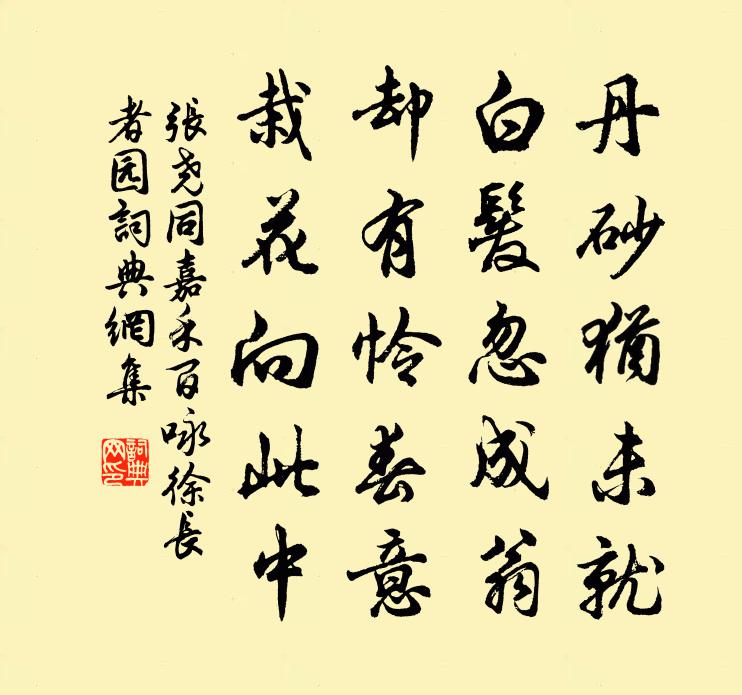 丹砂猶未就
白髮忽成翁
却有怜春意
栽花向此中
張尧同嘉禾百咏徐長
者园詞典網集
詞典
网印